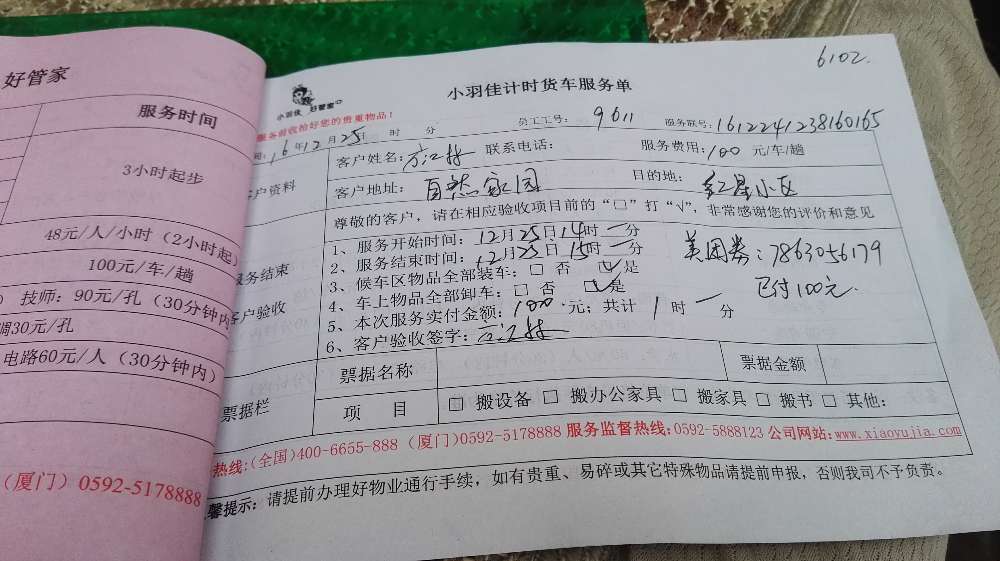 好管家
服务时间
3小时起步
48元/人/小时（2小时起）
100元/车/趟
技师：90元/孔（30分钟内
调30元/孔
电路60元/人（30分钟内）
（厦门）0592-5178888
6102
小羽佳 好管家
小羽佳计时货车服务单
服务前收拾好您的贵重物品！
间：16年12月25日 时 分 员工工号：9611 服务联号：1612241238160165
客户资料
客户姓名：方江林 联系电话： 服务费用：100元/车/趟
客户地址：自然家园 目的地：红星小区
服务结束
客户验收
尊敬的客户，请在相应验收项目前的“□”打“√”，非常感谢您的评价和意见
1、服务开始时间：12月25日14时一分
2、服务结束时间：12月25日15时一分
3、候车区物品全部装车：□ 否 ☑是
4、车上物品全部卸车：□ 否 ☑是
5、本次服务实付金额：100元；共计 1 时 一 分
6、客户验收签字：方江林
美团券：7863056179
已付100元
票据栏
票据名称 票据金额
项 目 □ 搬设备 □ 搬办公家具 □ 搬家具 □ 搬书 □ 其他：
热线：（全国）400-6655-888（厦门）0592-5178888 服务监督热线：0592-5888123 公司网站：www.xiaoyujia.com
馨提示：请提前办理好物业通行手续，如有贵重、易碎或其它特殊物品请提前申报，否则我司不予负责。